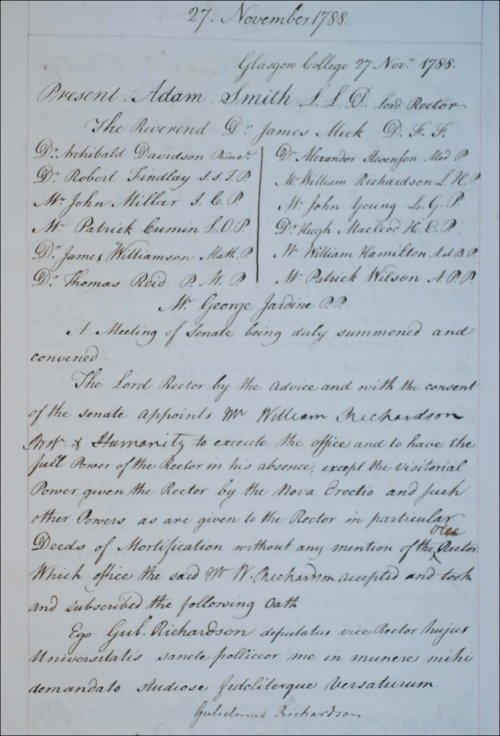 27. November 1788.
Glasgow College 27 Novr. 1788
Present Adam Smith L L D. Lord Rector
The Reverend Dr. James Meek D. F. F.
Dr. Archibald Davidson Princ.
Dr. Robert Findlay S. S. T. P.
Mr. John Millar I. C. P
Mr Patrick Cumin L. O. P
Dr. James Williamson Math. P.
Dr. Thomas Reid P. M. P.
Dr. Alexander Stevenson Med P.
Mr William Richardson L. H. P.
Mr John Young L. G. P
Dr Hugh Macleod H. E. P.
Mr William Hamilton A & B. P.
Mr Patrick Wilson A. P. P
Mr. George Jardine P. P.
A Meeting of Senate being duly summoned and
convened.
The Lord Rector by the advice and with the consent
of the senate appoints Mr William Richardson
Prof. of Humanity to execute the office and to have the
full Power of the Rector in his absence, except the Visitorial
Power given the Rector by the Nova Erectio and such
other Powers as are given to the Rector in particular
Deeds of Mortification without any mention of the vice Rector.
Which office the said Mr W. Richardson accepted and took
and subscribed the following Oath
Ego Gul. Richardson deputatus vice Rector hujus
Universitatis sancte polliceor me in munere mihi
demandato studiose fideliterque versaturum.
Gulielmus Richardson